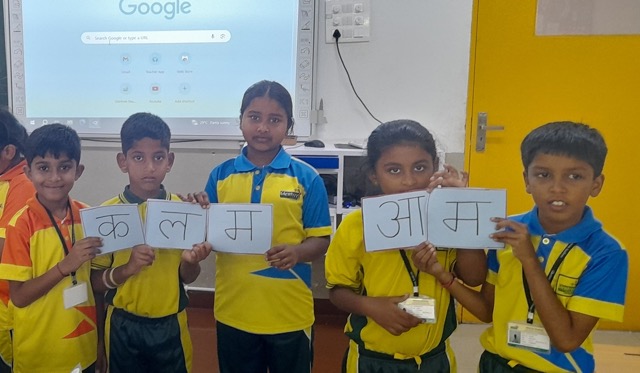 Google
Search Google or type a URL
क ल म आ म